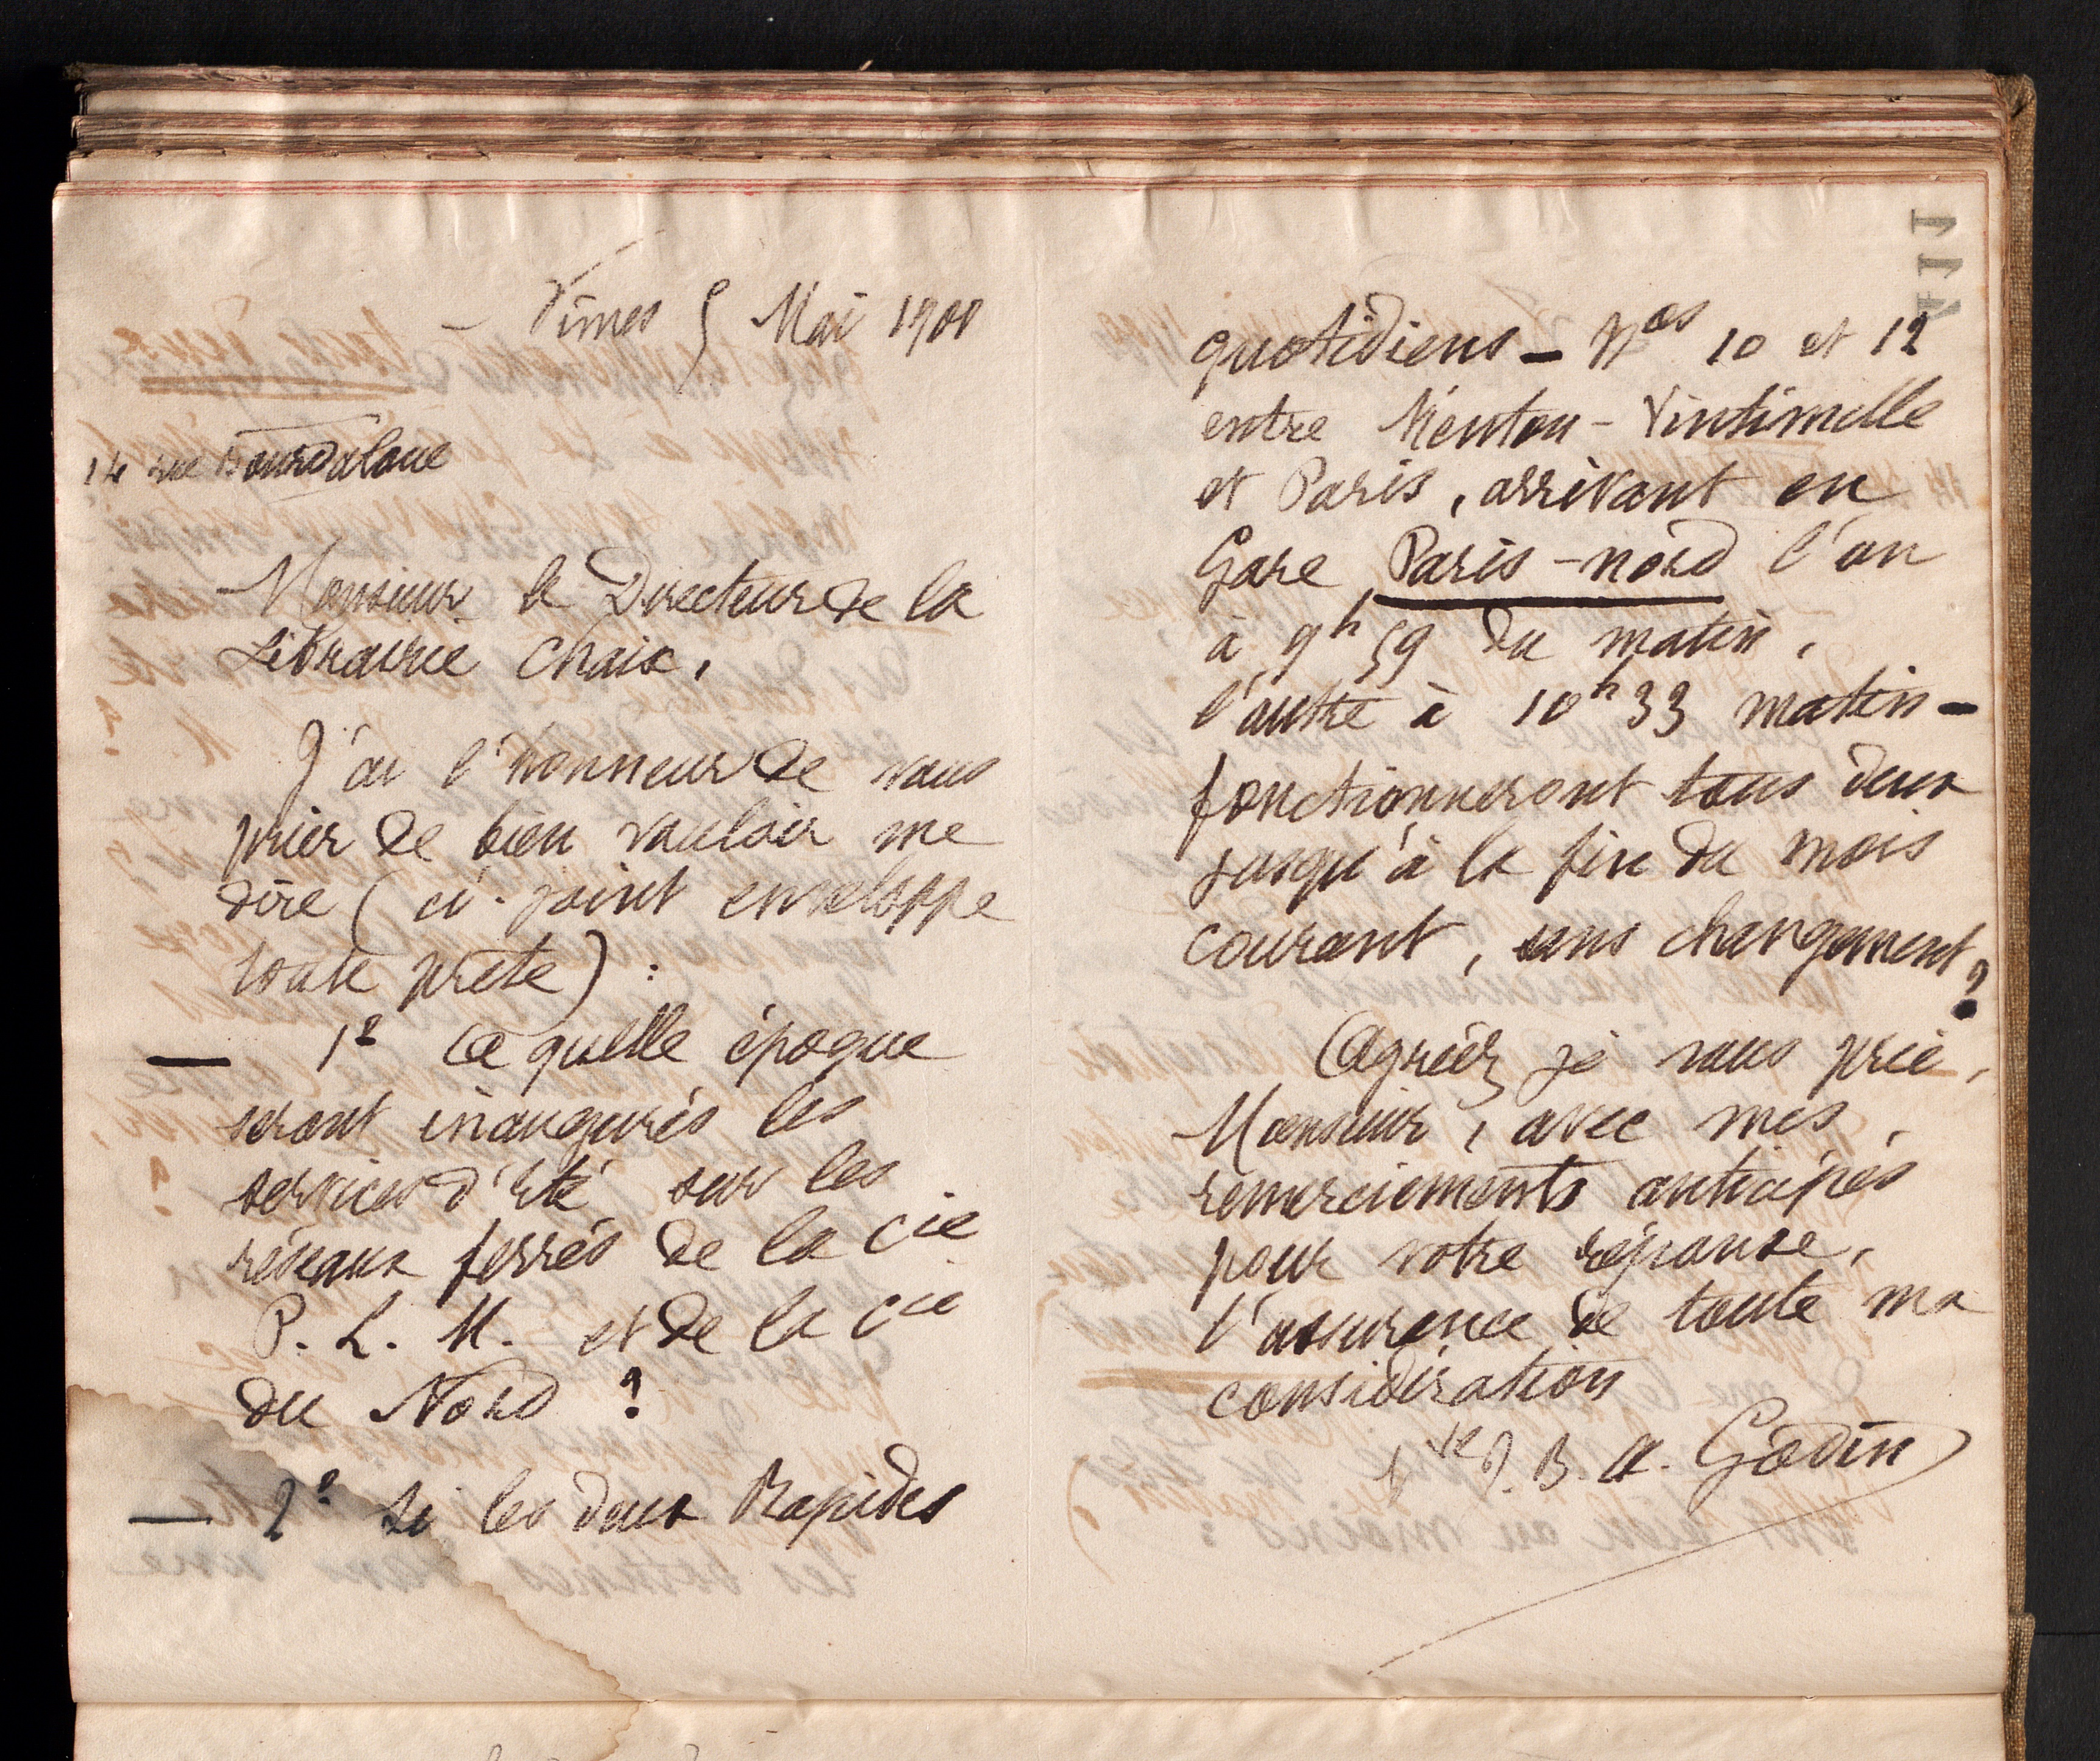 Nîmes 5 Mai 1900
14 rue Bourdaloue
Monsieur le Directeur de la
Librairie Chaix,
J'ai l'honneur de vous
prier de bien vouloir me
dire (ci-joint enveloppe
toute prête) :
— 1º à quelle époque
seront inaugurés les
services d'été sur les
réseaux ferrés de la Cie
P. L. M. et de la Cie
du Nord ?
— 2º Si les deux Rapides
quotidiens — Nos 10 et 12
entre Menton - Vintimille
et Paris, arrivant en
Gare Paris-nord l'un
à 9h 59 du matin,
l'autre à 10h 33 matin —
fonctionneront tous deux
jusqu'à la fin du mois
courant, sans changement ?
Agréez je vous prie,
Monsieur, avec mes
remerciements anticipés
pour votre réponse,
l'assurance de toute ma
considération
Vve J. B. A. Godin